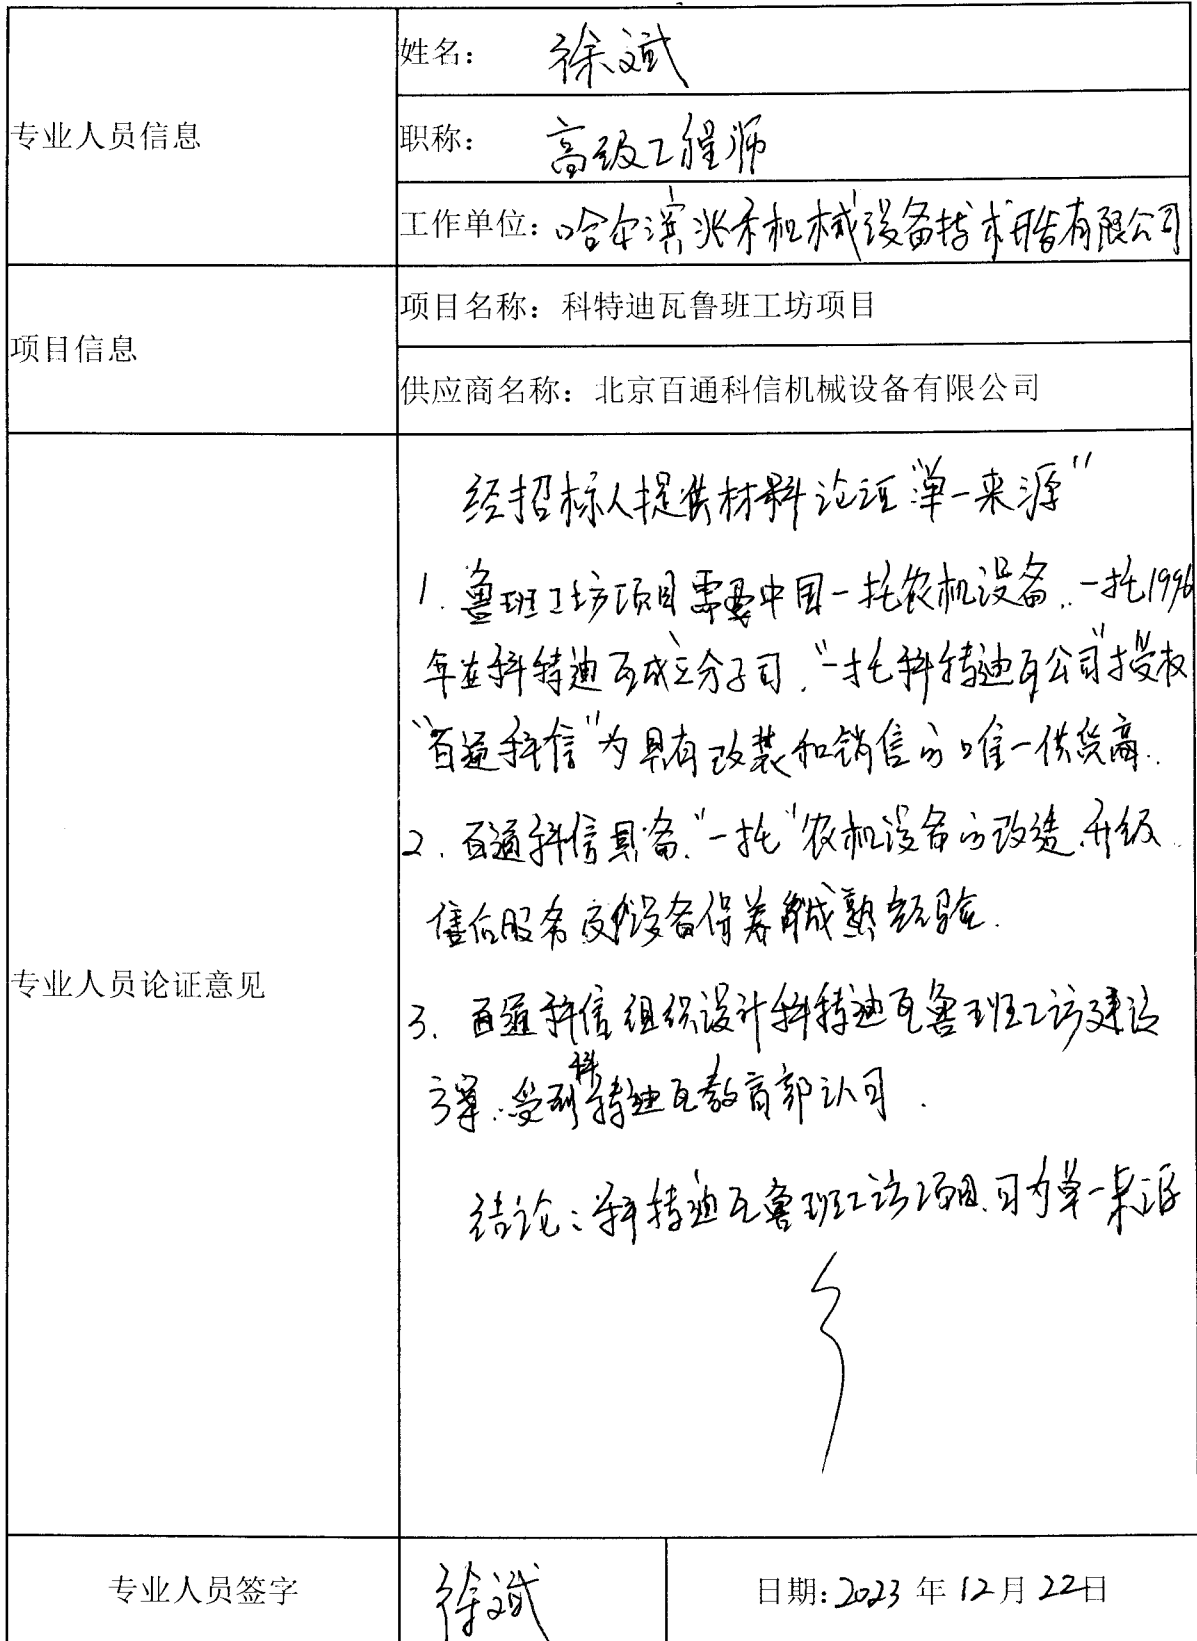 专业人员信息
姓名：徐斌
职称：高级工程师
工作单位：哈尔滨兆禾机械设备技术开有限公司
项目信息
项目名称：科特迪瓦鲁班工坊项目
供应商名称：北京百通科信机械设备有限公司
专业人员论证意见
经招标人提供材料论证"单一来源"
1. 鲁班工坊项目需要中国一拖农机设备，一拖1996
年在科特迪瓦成立分子司，"一拖科特迪瓦公司"授权
"百通科信"为具有改装和销售的唯一供货商.
2. 百通科信具备"一拖"农机设备的改造、升级
售后服务及设备保养成熟经验.
3. 百通科信组织设计科特迪瓦鲁班工坊建设
方案，受到科特迪瓦教育部认可.
结论：科特迪瓦鲁班工坊项目，可为单一来源
专业人员签字
徐斌
日期：2023 年 12 月 22 日